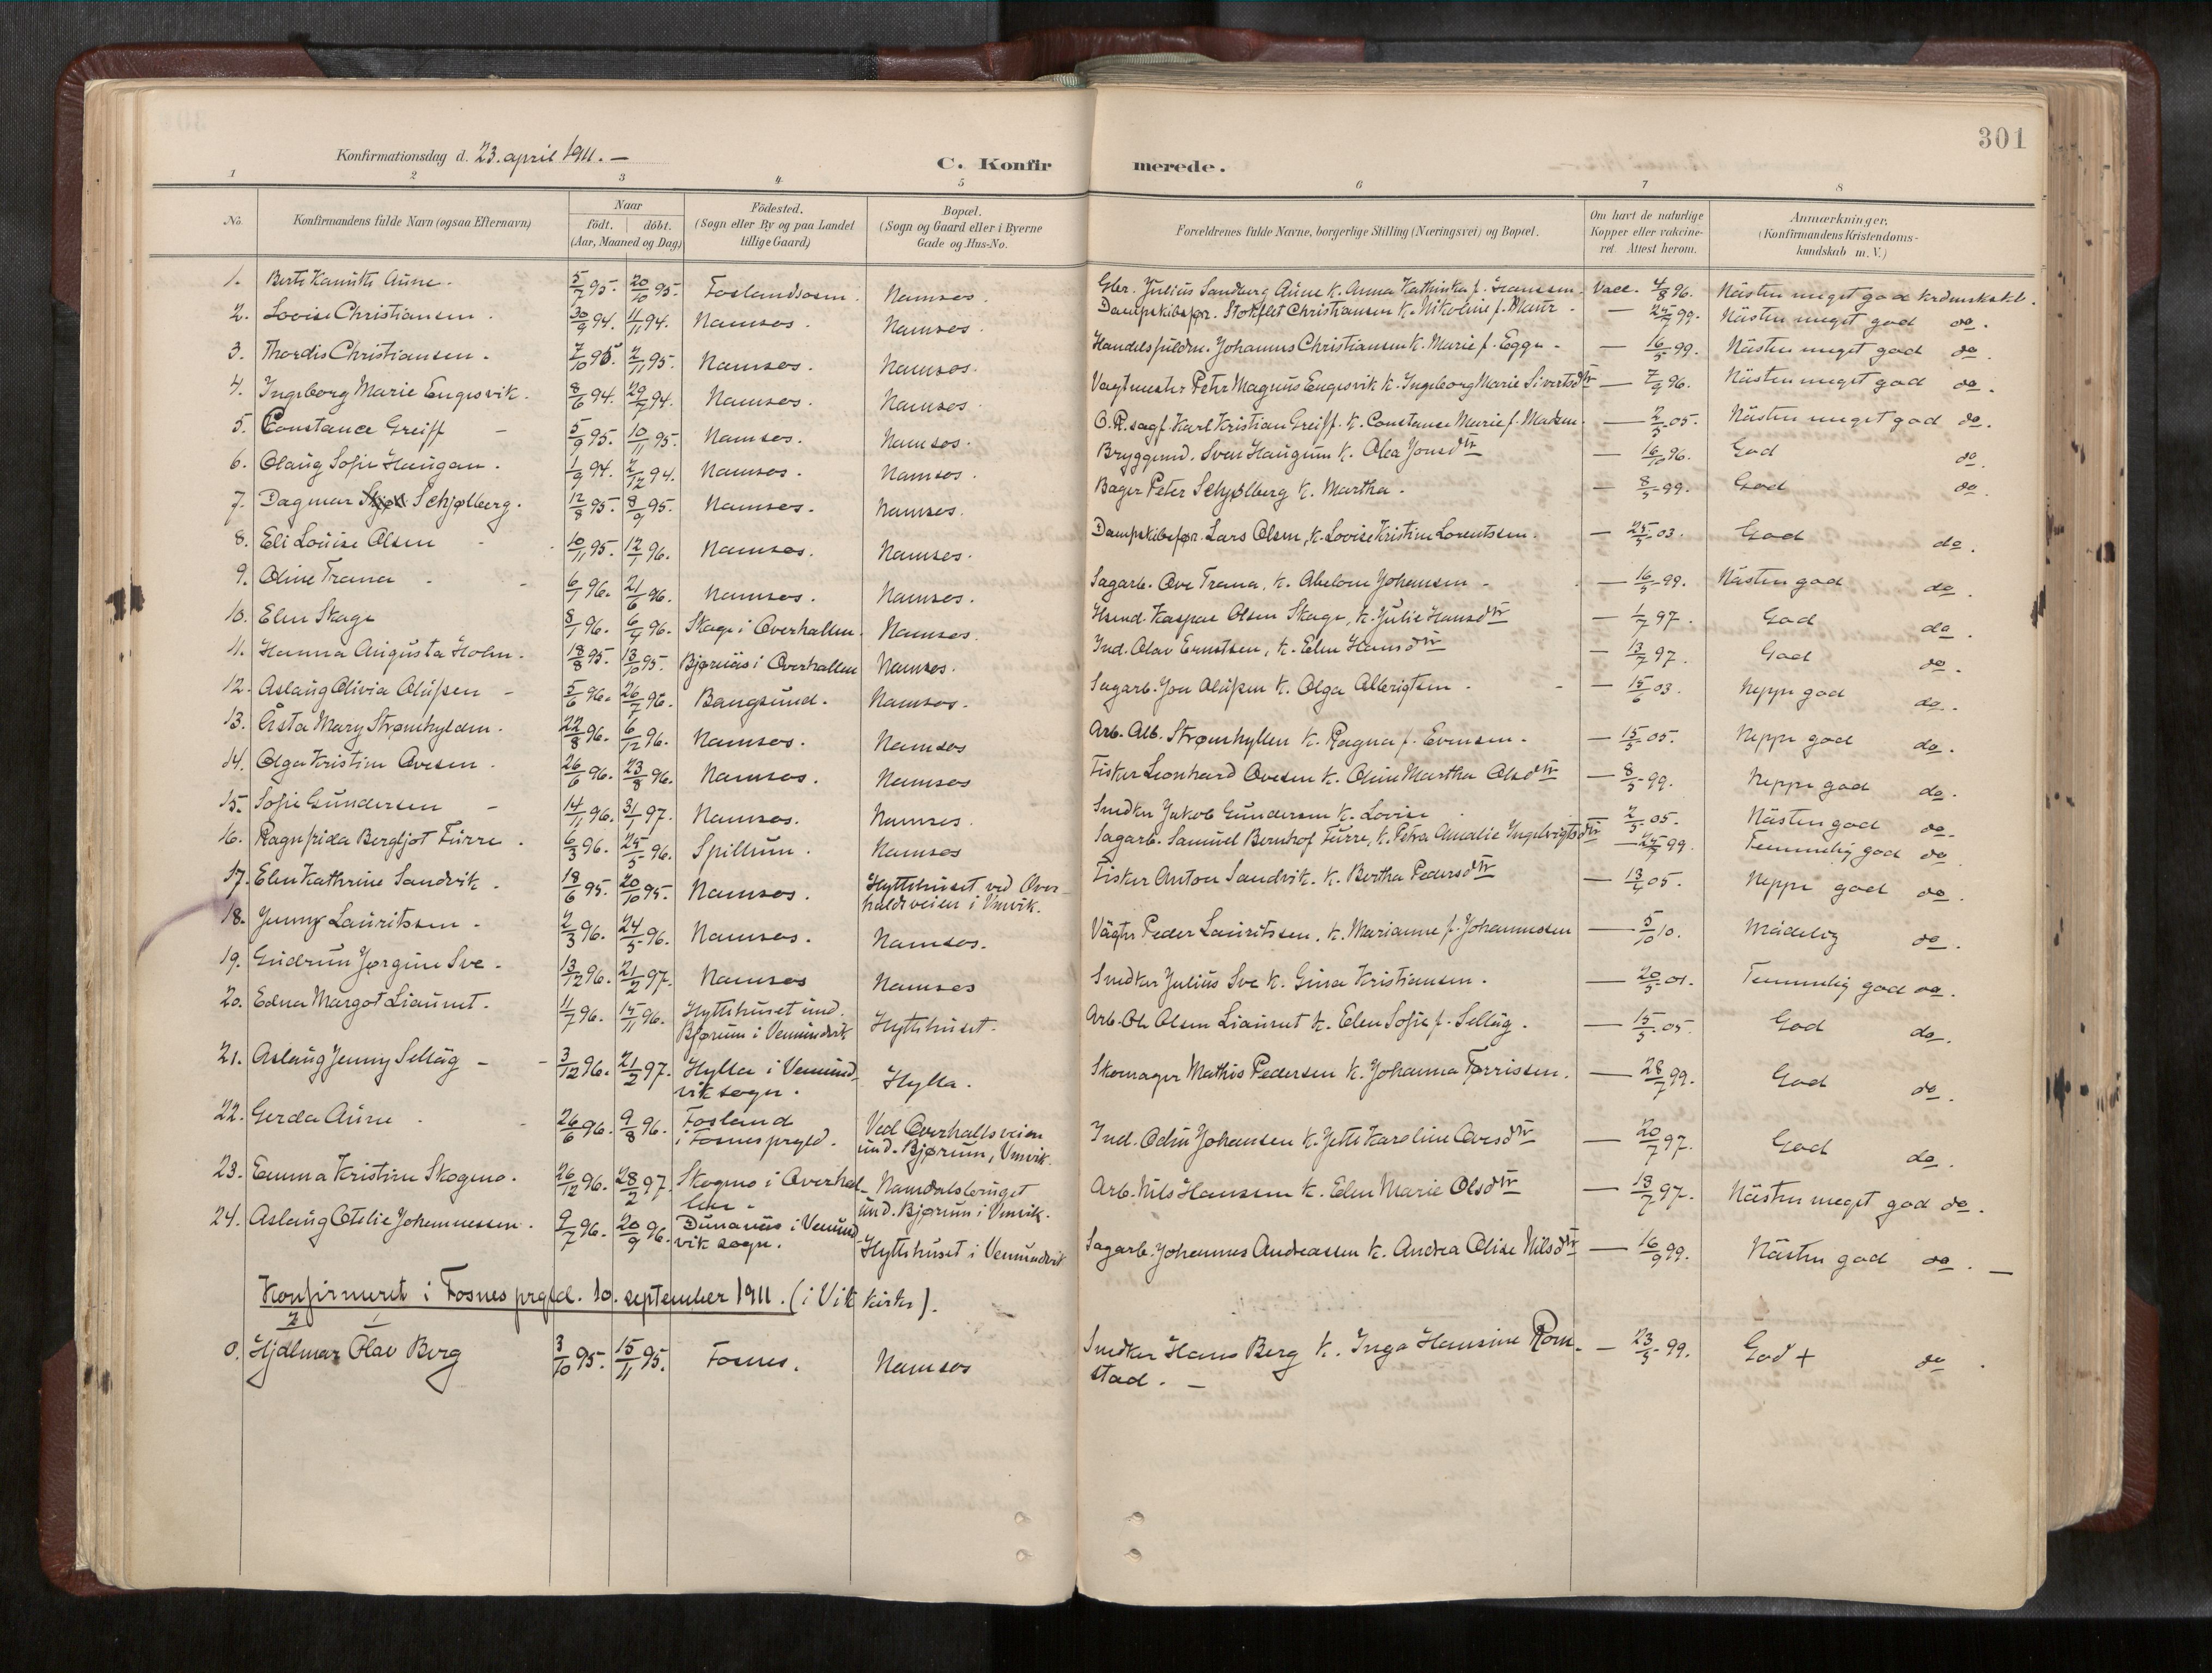 301
Konfirmationsdag d. 23. april 1911. —
C. Konfirmerede.
1 2 3 4 5 6 7 8
No. Konfirmandens fulde Navn (ogsaa Efternavn) Naar født. døbt. (Aar, Maaned og Dag) Fødested. (Sogn eller By og paa Landet tillige Gaard) Bopæl. (Sogn og Gaard eller i Byerne Gade og Hus-No. Forældrenes fulde Navne, borgerlige Stilling (Næringsvei) og Bopæl. Om havt de naturlige Kopper eller vakcineret. Attest herom. Anmærkninger. (Konfirmandens Kristendomskundskab m. V.)
1. Aune. 5/7 95. 20/10 95. Foslandsosen. Namsos. Julius Sandberg Aune K. Anna Kathinka f. Hansen. Vacc. 4/8 96. Nästen meget god
2. Lovise Christiansen. 30/9 94. 11/11 94. Namsos. Namsos. Dampskibsfør. Stokflet Christiansen K. Nikoline f. — 99. Nästen meget god do.
3. Thordis Christiansen. 7/10 95. 2/11 95. Namsos. Namsos. Johannes Christiansen K. Marie f. Egge. — 16/5 99. Nästen meget god do.
4. Ingeborg Marie Engesvik. 8/6 94. 29/7 94. Namsos. Namsos. Vagtmester Peter Magnus Engesvik K. Ingeborg Marie Sivertsdtr — 7/9 96. Nästen meget god do.
5. Constance Greiff 5/9 95. 10/11 95. Namsos. Namsos. O.R.sagf. Karl Kristian Greiff. K. Constance Marie f. Madsen. — 2/5 05. Nästen meget god do.
6. Olaug Sofie Haugan. 1/9 94. 2/12 94. Namsos. Namsos. Bryggemd. Sven Haugum K. Olea Jonsdtr — 16/10 96. God do.
7. Dagmar Schjølberg. 12/8 95. 8/9 95. Namsos. Namsos. Bager Peter Schjølberg K. Martha. — 8/5 99. God do.
8. Eli Louise Olsen 10/11 95. 12/1 96. Namsos. Namsos. Dampskibsfør. Lars Olsen, K. Lovise Kristine Lorentssen. — 25/5 03. God do.
9. Oline Trana 6/1 96. 21/6 96. Namsos. Namsos. Sagarb. Ove Trana, K. Abelone Johansen — 16/5 99. Nästen god do.
10. Elen Skage 8/1 96. 6/4 96. Skage i Overhallen. Namsos. Hsmd. Kaspar Olsen Skage, K. Julie Hansdtr — 1/7 97. God do.
11. Hanna Augusta Holm. 18/8 95. 13/10 95. Bjørnäs i Overhallen Namsos. Ind. Olav Ernstsen, K. Elen Hansdtr — 13/7 97. God do.
12. Aslaug Olivia Olufsen 5/6 96. 26/7 96. Bangsund. Namsos. Sagarb. Jon Olufsen K. Olga Albrigtsen. — 15/6 03. Neppe god do.
13. Åsta Mary Strømhylden. 22/8 96. 6/12 96. Namsos. Namsos Arb. Alb. Strømhyllen K. Ragna f. Evensen. — 15/5 05. Neppe god do.
14. Olga Kristine Ovesen. 26/6 96. 23/8 96. Namsos. Namsos Fisker Leonhard Ovesen K. Oline Martha Olsdtr — 8/5 99. Neppe god do.
15. Sofie Gundersen 14/11 96. 31/1 97. Namsos. Namsos. Snedker Jakob Gundersen K. Lovise 2/5 05. Nästen god do.
16. Ragnfrida Bergljot Furre. 6/3 96. 25/5 96. Spillum. Namsos Sagarb. Samuel Bernhof Furre, K. Petra Amalie Ingebrigtsdtr — 99. Temmelig god do
17. Elen Kathrine Sandvik. 18/6 95. 20/10 95. Namsos. Hyttehuset ved Overhaldsveien i Vmvik. Fisker Anton Sandvik. K. Bertha Pedersdtr — 05. Neppe god do.
18. Jenny Lauritssen. 2/3 96. 24/5 96. Namsos. Namsos. Vägter Peder Lauritssen. K. Marianne f. Johannessen — 5/10 10. Mådelig do.
19. Gudrun Jørgine Sve. 13/12 96. 21/2 97. Namsos Namsos Snedker Julius Sve K. Gina Kristiansen. — 20/5 01. Temmelig god do.
20. Edna Margot Liaunet. 11/7 96. 15/11 96. Hyttehuset und. Bjørum i Vemundvik Hyttehuset. Arb. Ole Olsen Liaunet K. Elen Sofie f. Selläg. — 15/5 05. God do.
21. Aslaug Jenny Selläg 3/12 96. 21/2 97. Hylla i Vemundvik sogn. Hylla. Skomager Mathis Pedersen K. Johanna Tørrissen. — 28/7 99. God do.
22. Gerda Aune 26/6 96. 9/8 96. Fosland i Fosnes prgld. Ved Overhallsveien und. Bjørum, Vmvik. Ind. Odin Johansen K. Jette Karoline Ovesdtr — 20/7 97. God do.
23. Emma Kristine Skogmo. 26/12 96. 28/2 97. Skogmo i Overhallen. Namdalsbruget und. Bjørum i Vmvik. Arb. Nils Hansen K. Elen Marie Olsdtr — 13/7 97. Nästen meget god do.
24. Aslaug Otelie Johannessen. 9/7 96. 20/9 96. Dunanäs i Vemundvik sogn. Hyttehuset i Vemundvik Sagarb. Johannes Andreassen K. Andrea Olise Nilsdtr — 16/9 99. Nästen god do. —
Konfirmeret i Fosnes prgld. 10. september 1911. (i Vik kirke).
0. Hjalmar Olav Berg 3/10 95. 15/11 95. Fosnes. Namsos Snedker Hans Berg K. Inga Hansine Romstad. — 23/5 99. God + do.